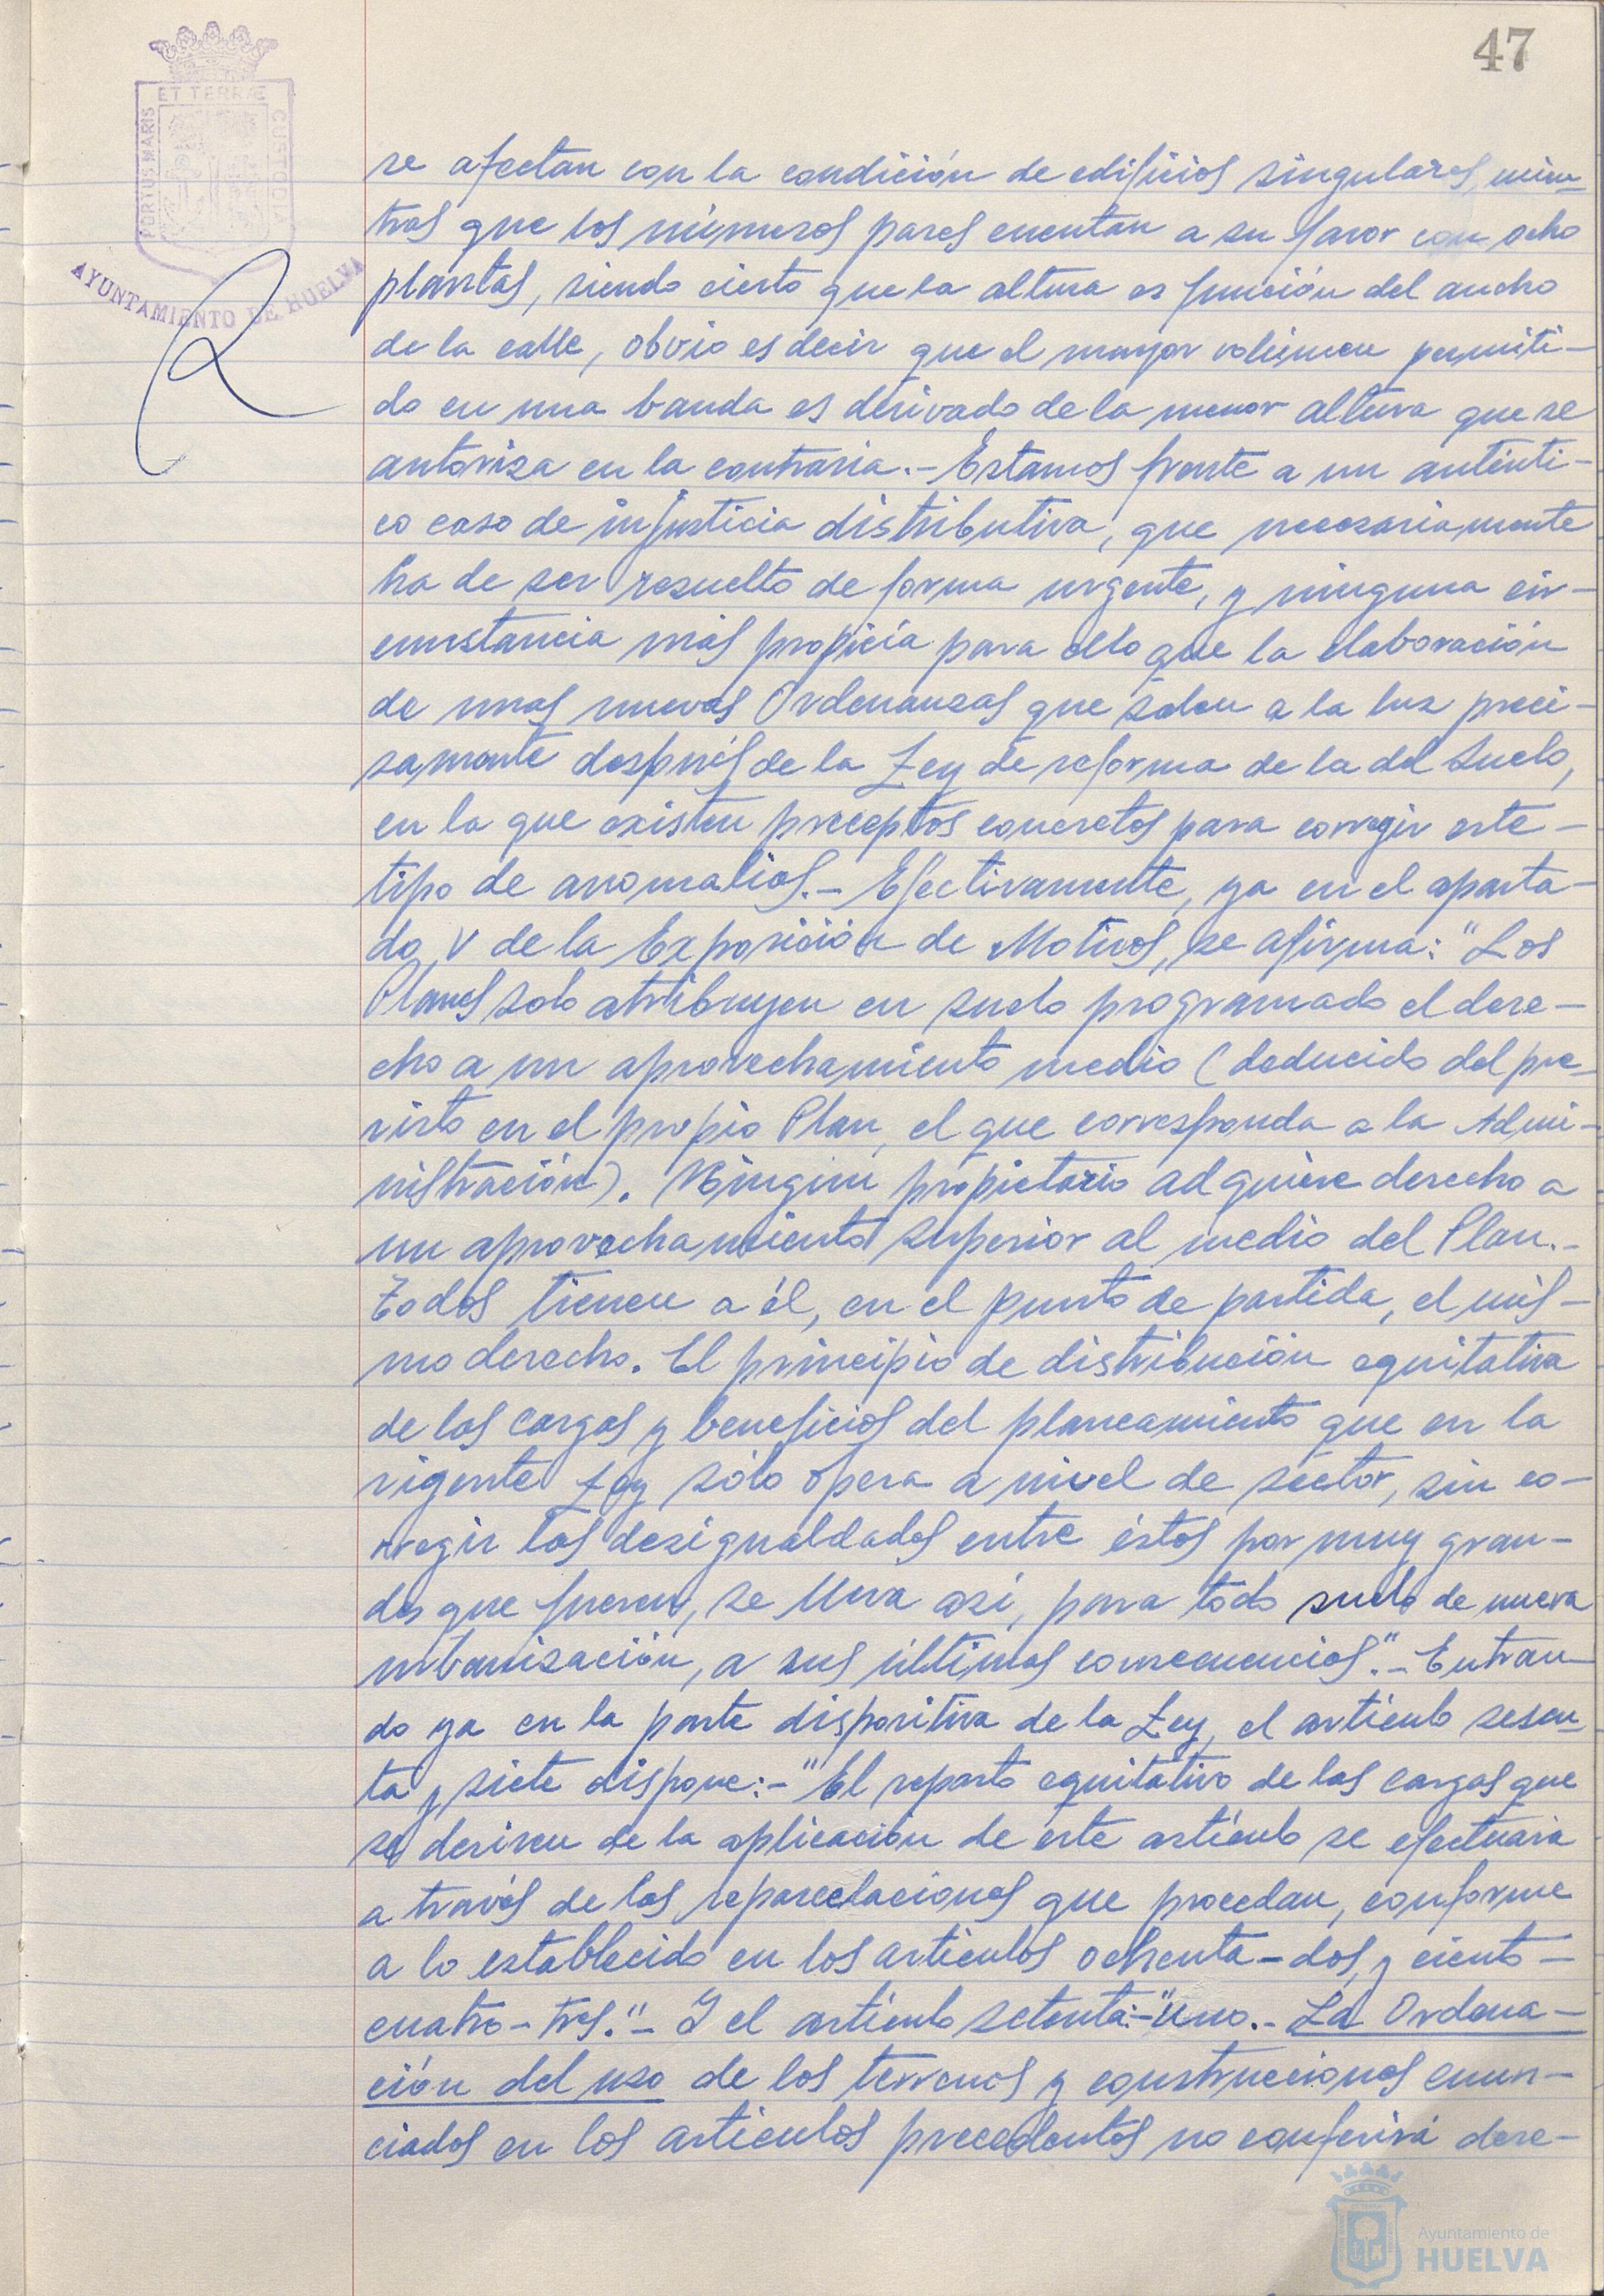 47
ET TERRÆ
PORTUS MARIS
CUSTODIA
AYUNTAMIENTO DE HUELVA
se afectan con la condición de edificios singulares, mien-
tras que los números pares cuentan a su favor con ocho
plantas, siendo cierto que la altura es función del ancho
de la calle, obvio es decir que el mayor volúmen permiti-
do en una banda es derivado de la menor altura que se
autoriza en la contraria.- Estamos frente a un auténti-
co caso de injusticia distributiva, que necesariamente
ha de ser resuelto de forma urgente, y ninguna cir-
cunstancia más propicia para ello que la elaboración
de unas nuevas Ordenanzas que salen a la luz preci-
samente después de la Ley de reforma de la del Suelo,
en la que existen preceptos concretos para corregir este-
tipo de anomalias.- Efectivamente, ya en el aparta-
do V de la Exposición de Motivos, se afirma: "Los
Planes solo atribuyen en suelo programado el dere-
cho a un aprovechamiento medio (deducido del pre-
visto en el propio Plan, el que corresponda a la Admi-
nistración). Ningún propietario adquiere derecho a
un aprovechamiento superior al medio del Plan.-
Todos tienen a él, en el punto de partida, el mis-
mo derecho. El principio de distribución equitativa
de las cargas y beneficios del planeamiento que en la
vigente Ley sólo opera a nivel de sector, sin co-
rregir las desigualdades entre éstos por muy gran-
des que fueren, se lleva asi, para todo suelo de nueva
urbanización, a sus últimas consecuencias".- Entran-
do ya en la parte dispositiva de la Ley, el artículo sesen-
ta y siete dispone:- "El reparto equitativo de las cargas que
se deriven de la aplicación de este artículo se efectuará
a través de las reparcelaciones que procedan, conforme
a lo establecido en los artículos ochenta-dos, y ciento-
cuatro-tres."- Y el artículo setenta:- "Uno.- La Ordena-
ción del uso de los terrenos y construcciones enun-
ciados en los artículos precedentes no conferirá dere-
Ayuntamiento de
HUELVA